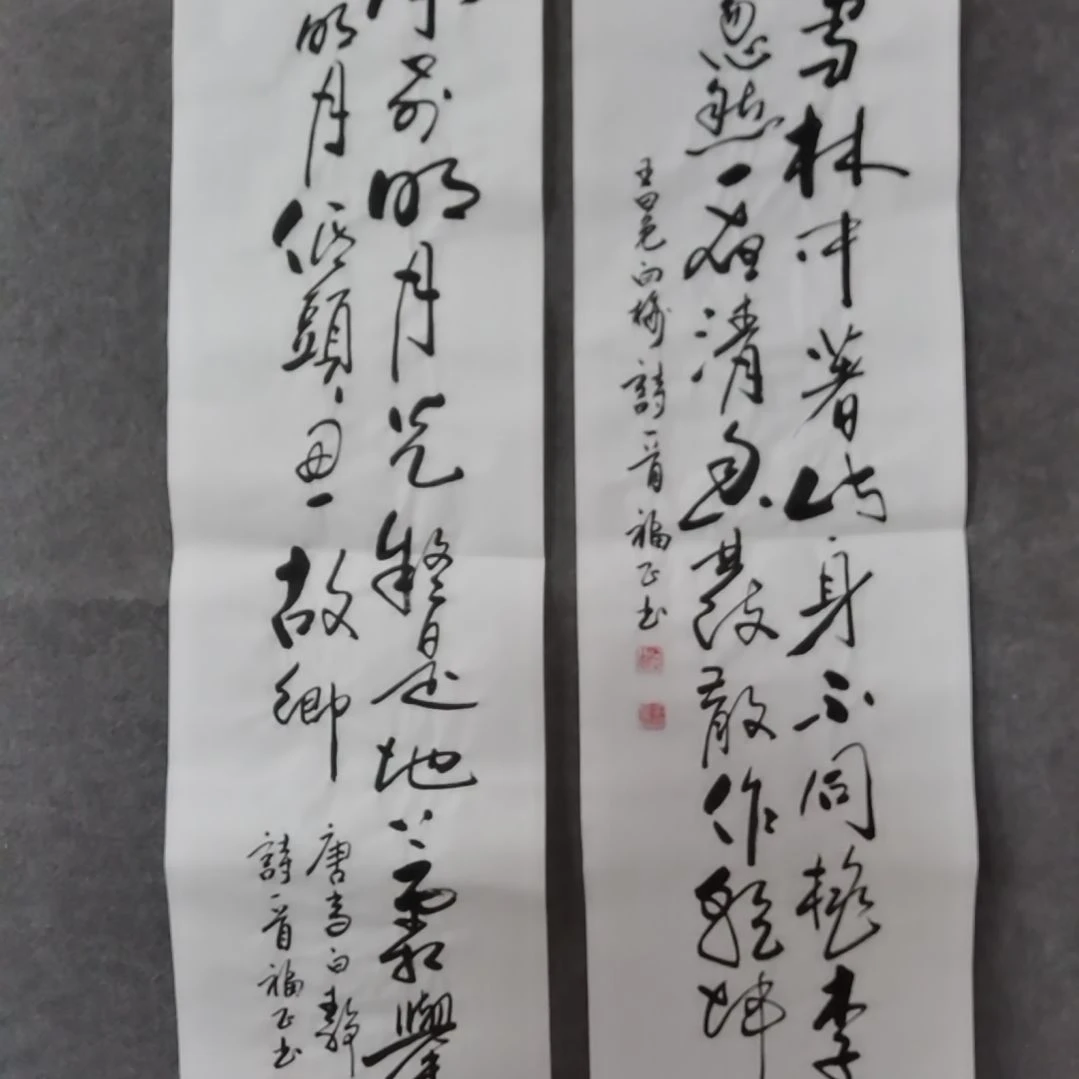 雪林中著此身不同桃李
忽然一夜清香發散作乾坤
王冕白梅詩一首福正书
床前明月光疑是地上霜舉
明月低頭思故鄉
唐李白靜
詩一首福正书